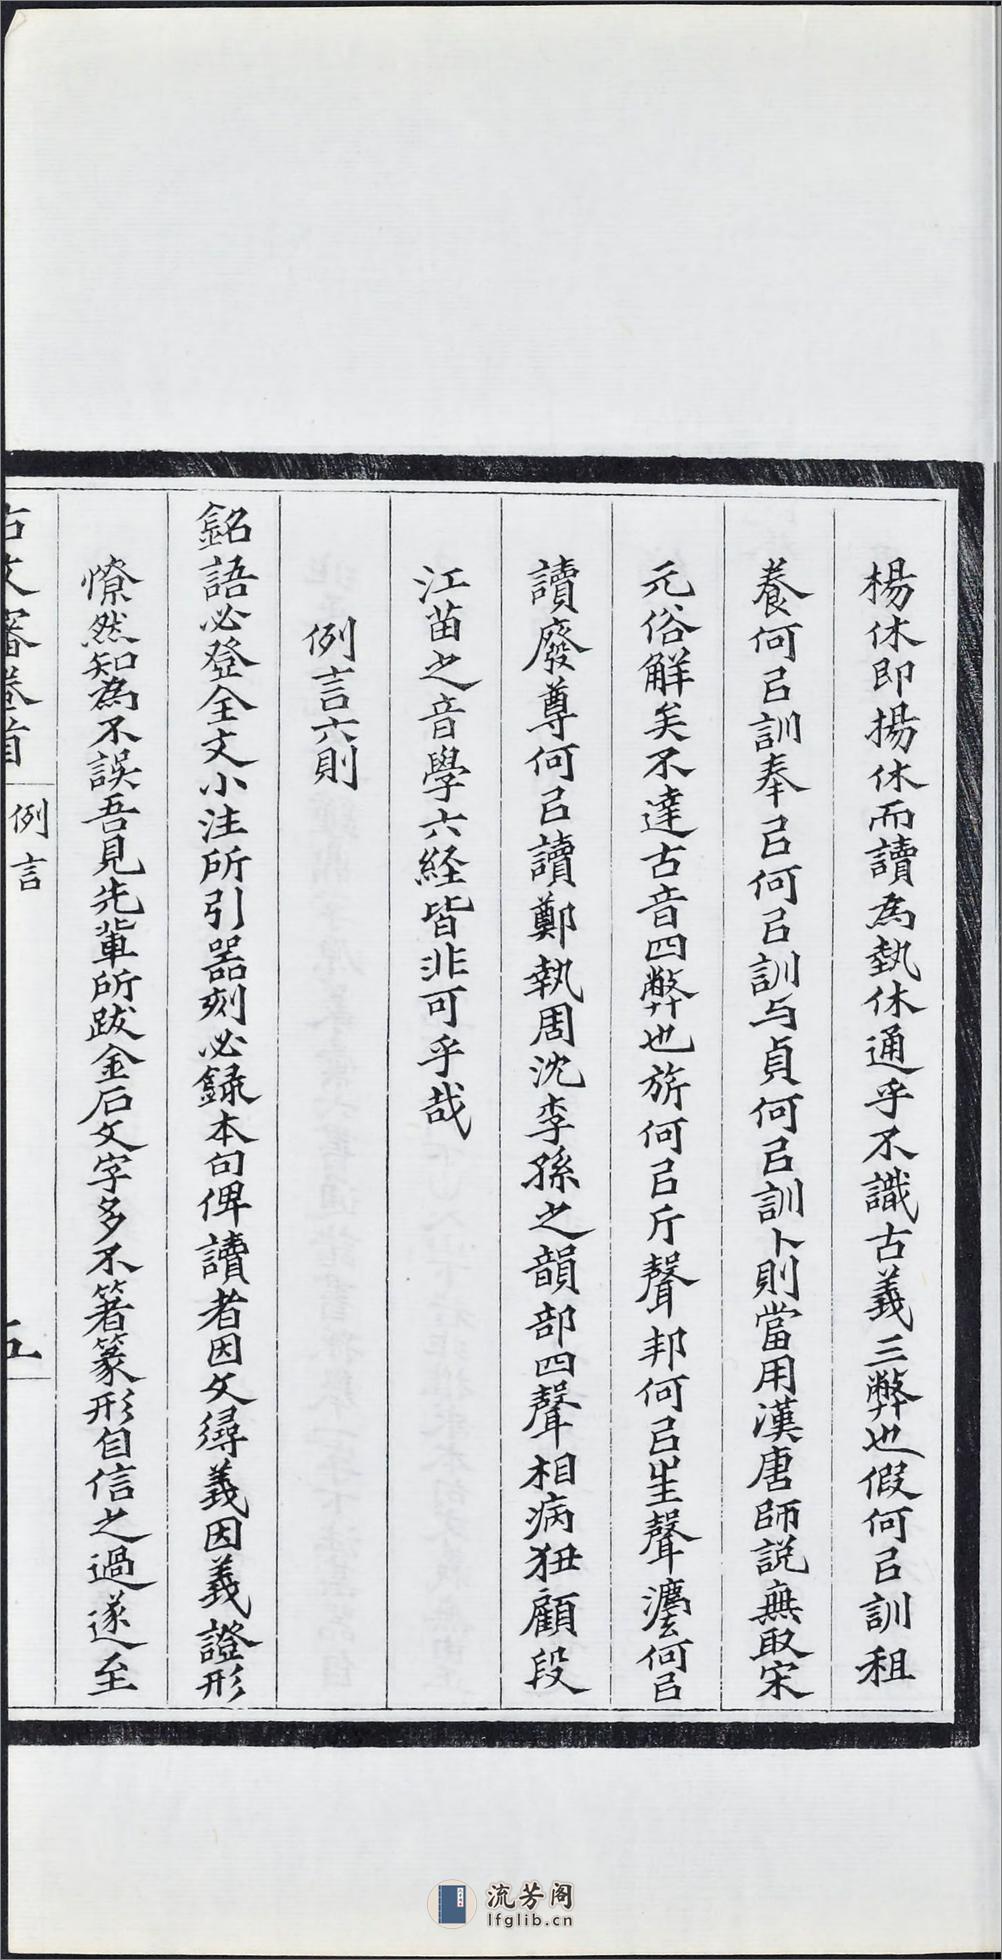 楊休即揚休而讀為㙯休通乎不識古義三弊也假何㠯訓租
養何㠯訓奉㠯何㠯訓与貞何㠯訓卜則當用漢唐師說無取宋
元俗解矣不達古音四弊也旂何㠯斤聲邦何㠯丰聲瀍何㠯
讀廢尊何㠯讀鄭執周沈李孫之韻部四聲相病狃顧段
江苗之音學六経皆非可乎哉
例言六則
銘語必登全文小注所引器刻必録本句俾讀者因文尋義因義證形
憭然知為不誤吾見先輩所跋金石文字多不箸篆形自信之過遂至
古文審卷首
例言
五
流芳阁
lfglib.cn